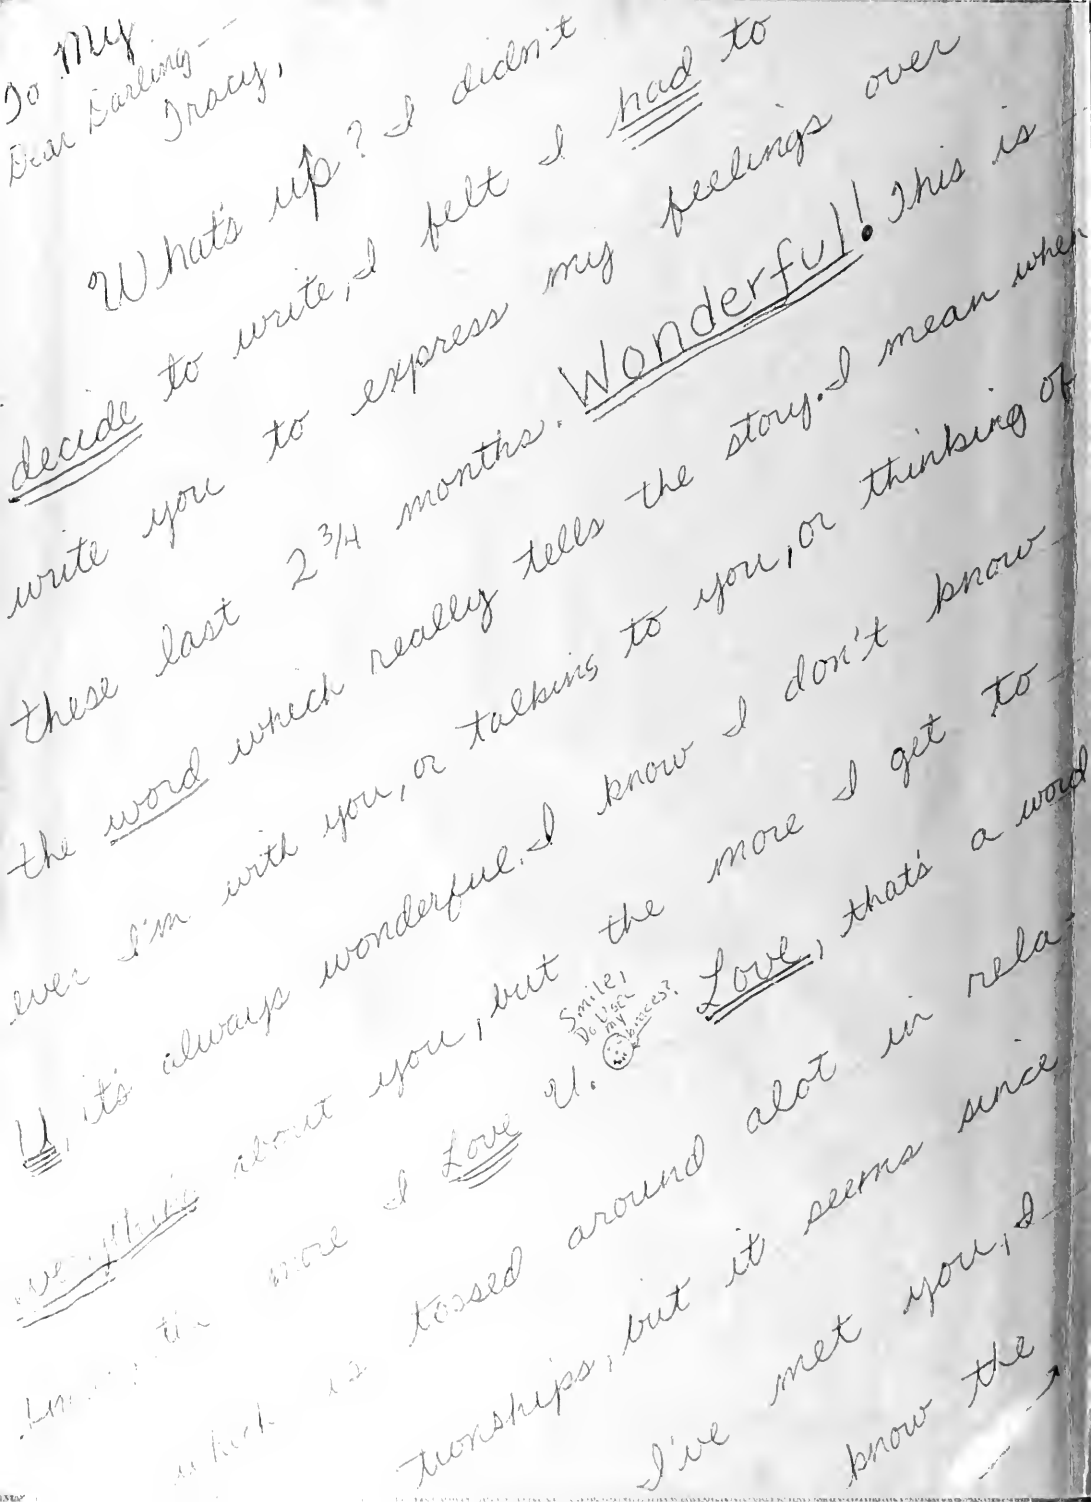 To My
Dear Darling--
Tracy,
What's up? I didn't
decide to write, I felt I had to
write you to express my feelings over
these last 2 3/4 months. Wonderful! This is
the word which really tells the story. I mean when
ever I'm with you, or talking to you, or thinking of
U, it's always wonderful. I know I don't know
everything about you, but the more I get to
the more I Love U. Love, that's a word
Smile,
Do U see
my
braces?
which is tossed around alot in rela-
tionships, but it seems since
I've met you, I
know the